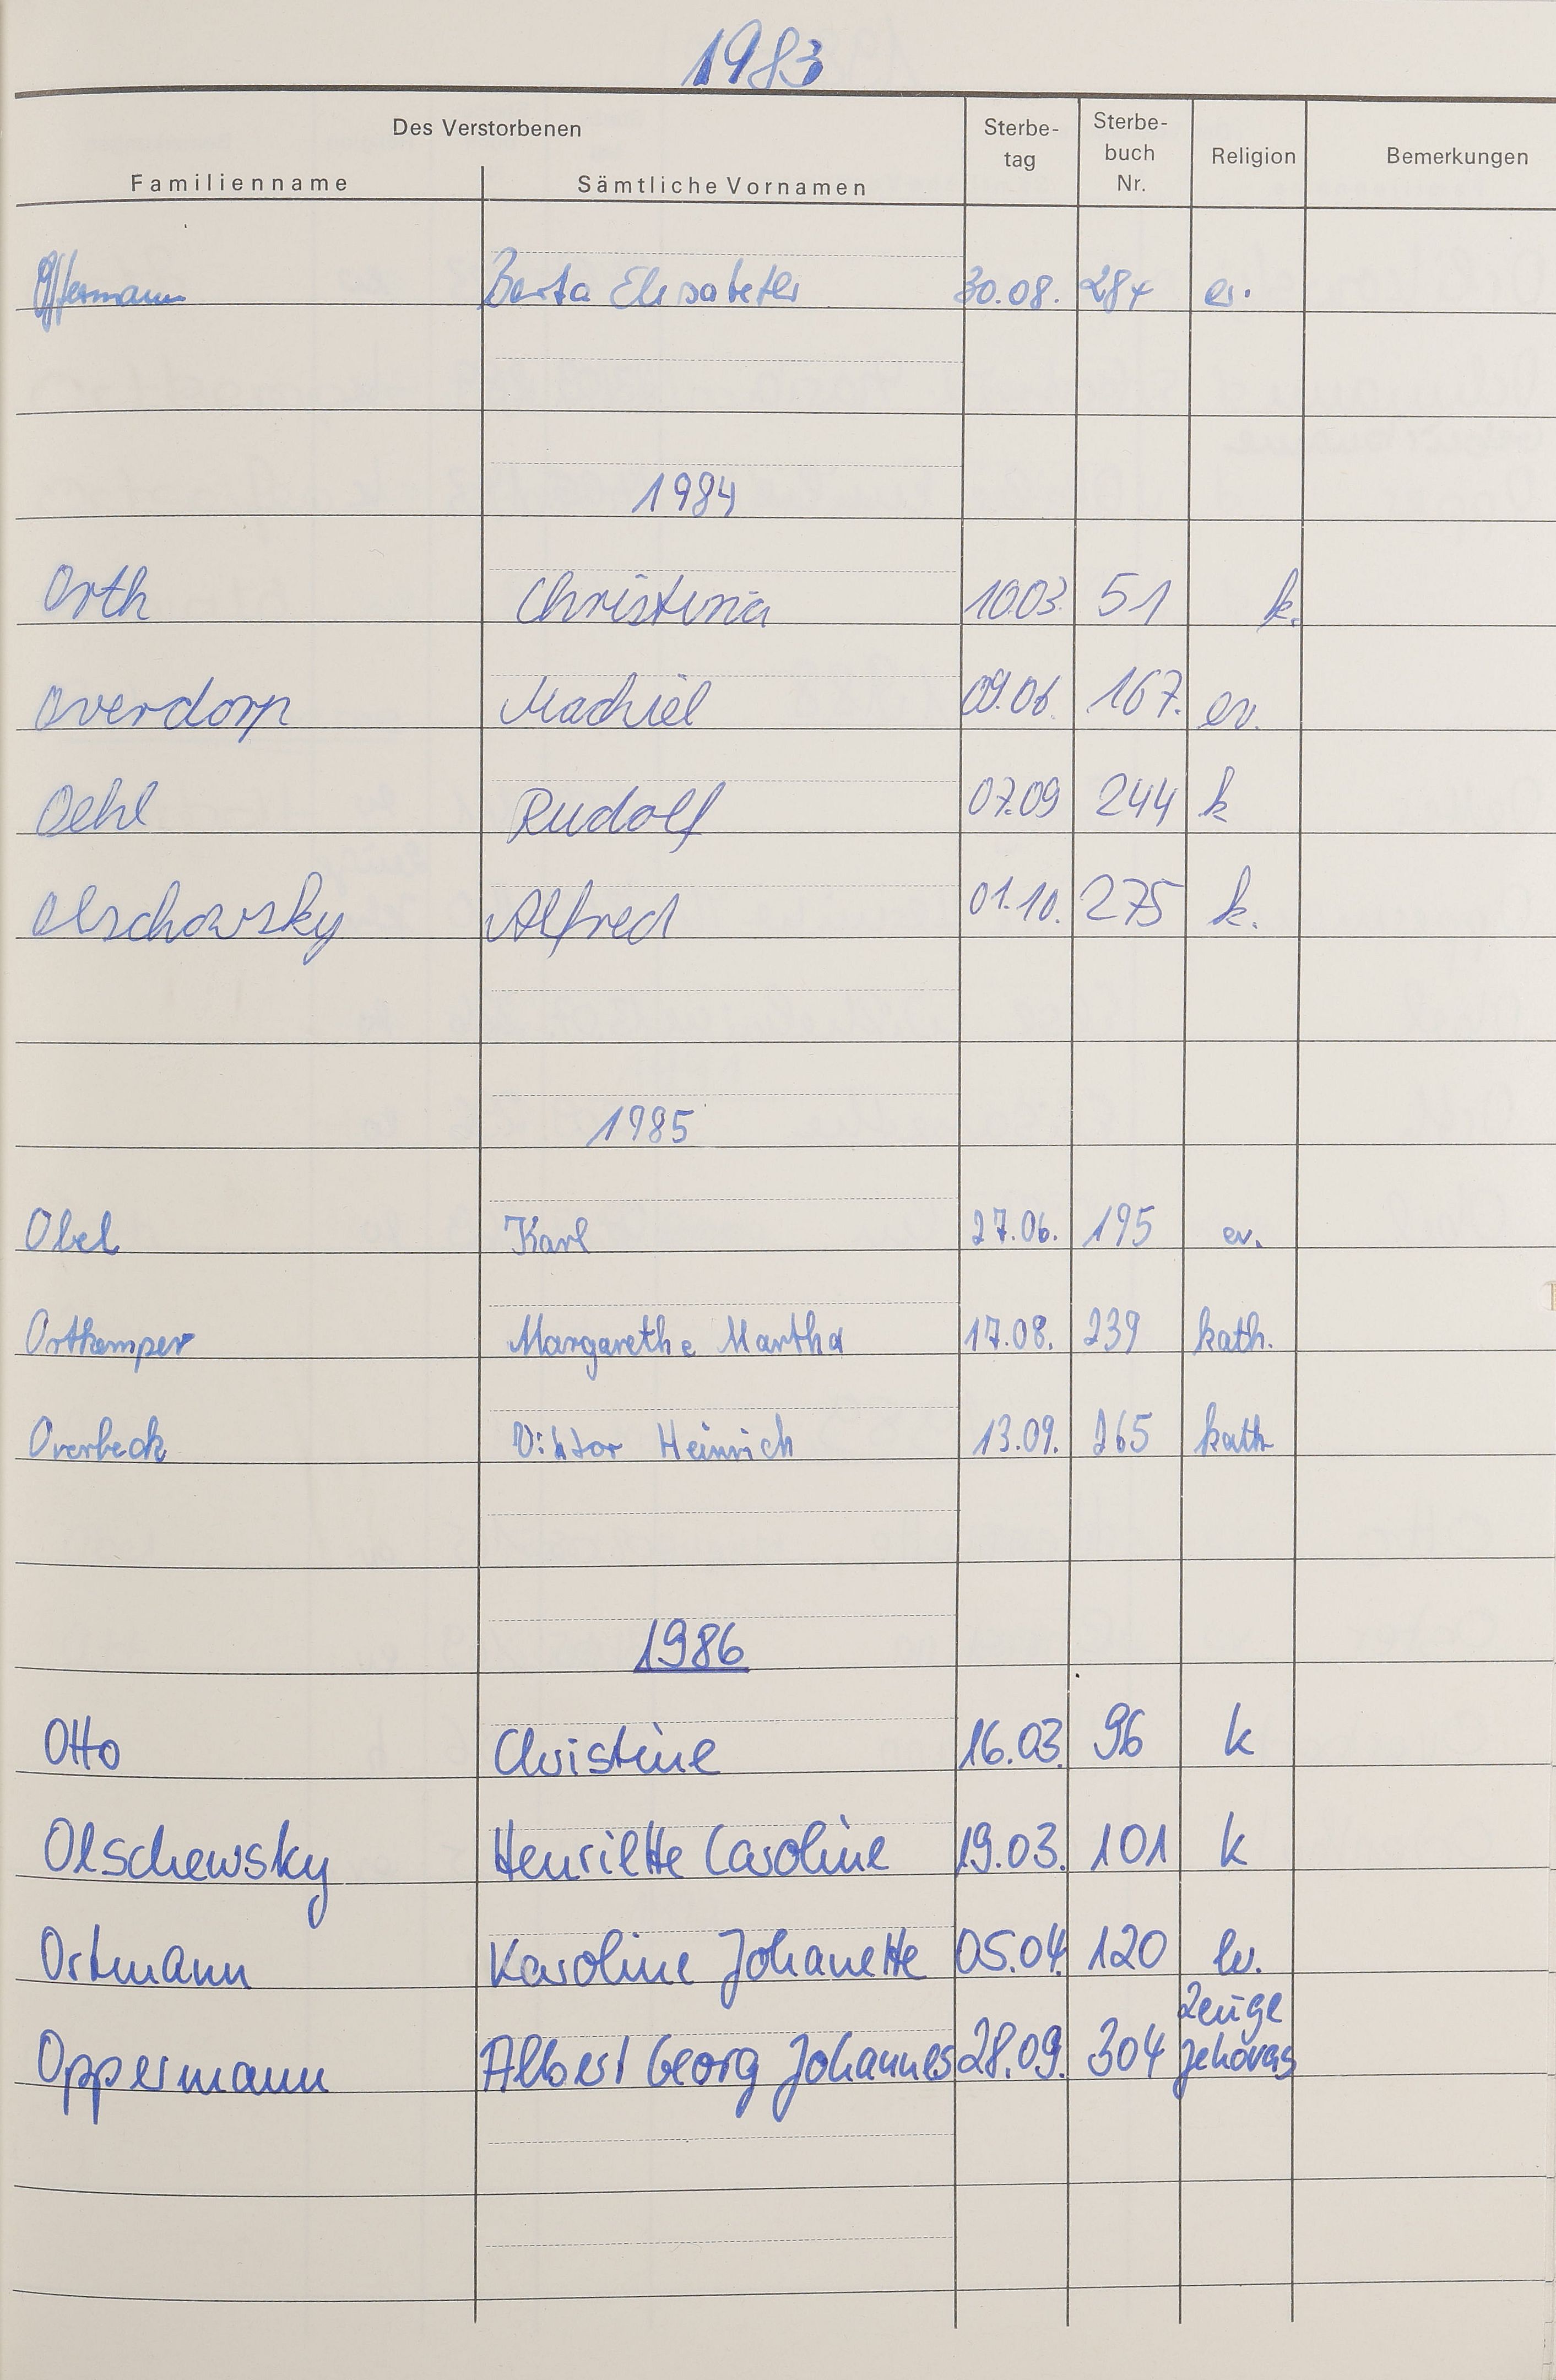 1983
Des Verstorbenen
Familienname Sämtliche Vornamen Sterbe-tag Sterbe-buch Nr. Religion Bemerkungen
Offermann Berta Elisabeth 30.08. 284 ev.
1984
Orth Christina 10.03. 51 k.
Overdorp Machiel 09.06. 167. ev.
Oehl Rudolf 07.09 244 k
Olschowsky Alfred 01.10. 275 k.
1985
Obel Karl 27.06. 195 ev.
Ortkemper Margarethe Martha 17.08. 239 kath.
Overbeck Viktor Heinrich 13.09. 265 kath
1986
Otto Christine 16.03. 96 k
Olschewsky Henriette Caroline 19.03. 101 k
Ortmann Karoline Johanette 05.04. 120 ev.
Oppermann Albert Georg Johannes 28.09. 304 Zeuge Jehovas